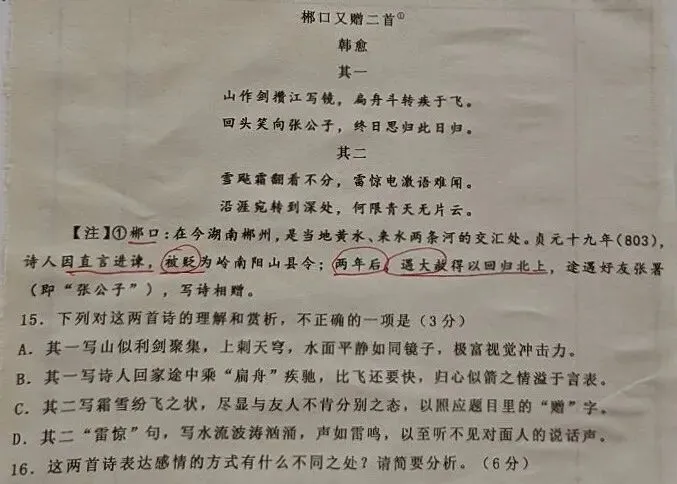 郴口又赠二首①
韩愈
其一
山作剑攒江写镜，扁舟斗转疾于飞。
回头笑向张公子，终日思归此日归。
其二
雪飐霜翻看不分，雷惊电激语难闻。
沿涯宛转到深处，何限青天无片云。
【注】①郴口：在今湖南郴州，是当地黄水、来水两条河的交汇处。贞元十九年(803)，
诗人因直言进谏，被贬为岭南阳山县令；两年后，遇大赦得以回归北上，途遇好友张署
（即“张公子”），写诗相赠。
15．下列对这两首诗的理解和赏析，不正确的一项是(3分)
A．其一写山似利剑聚集，上刺天穹，水面平静如同镜子，极富视觉冲击力。
B．其一写诗人回家途中乘“扁舟”疾驰，比飞还要快，归心似箭之情溢于言表。
C．其二写霜雪纷飞之状，尽显与友人不肯分别之态，以照应题目里的“赠”字。
D．其二“雷惊”句，写水流波涛汹涌，声如雷鸣，以至听不见对面人的说话声。
16．这两首诗表达感情的方式有什么不同之处？请简要分析。(6分)